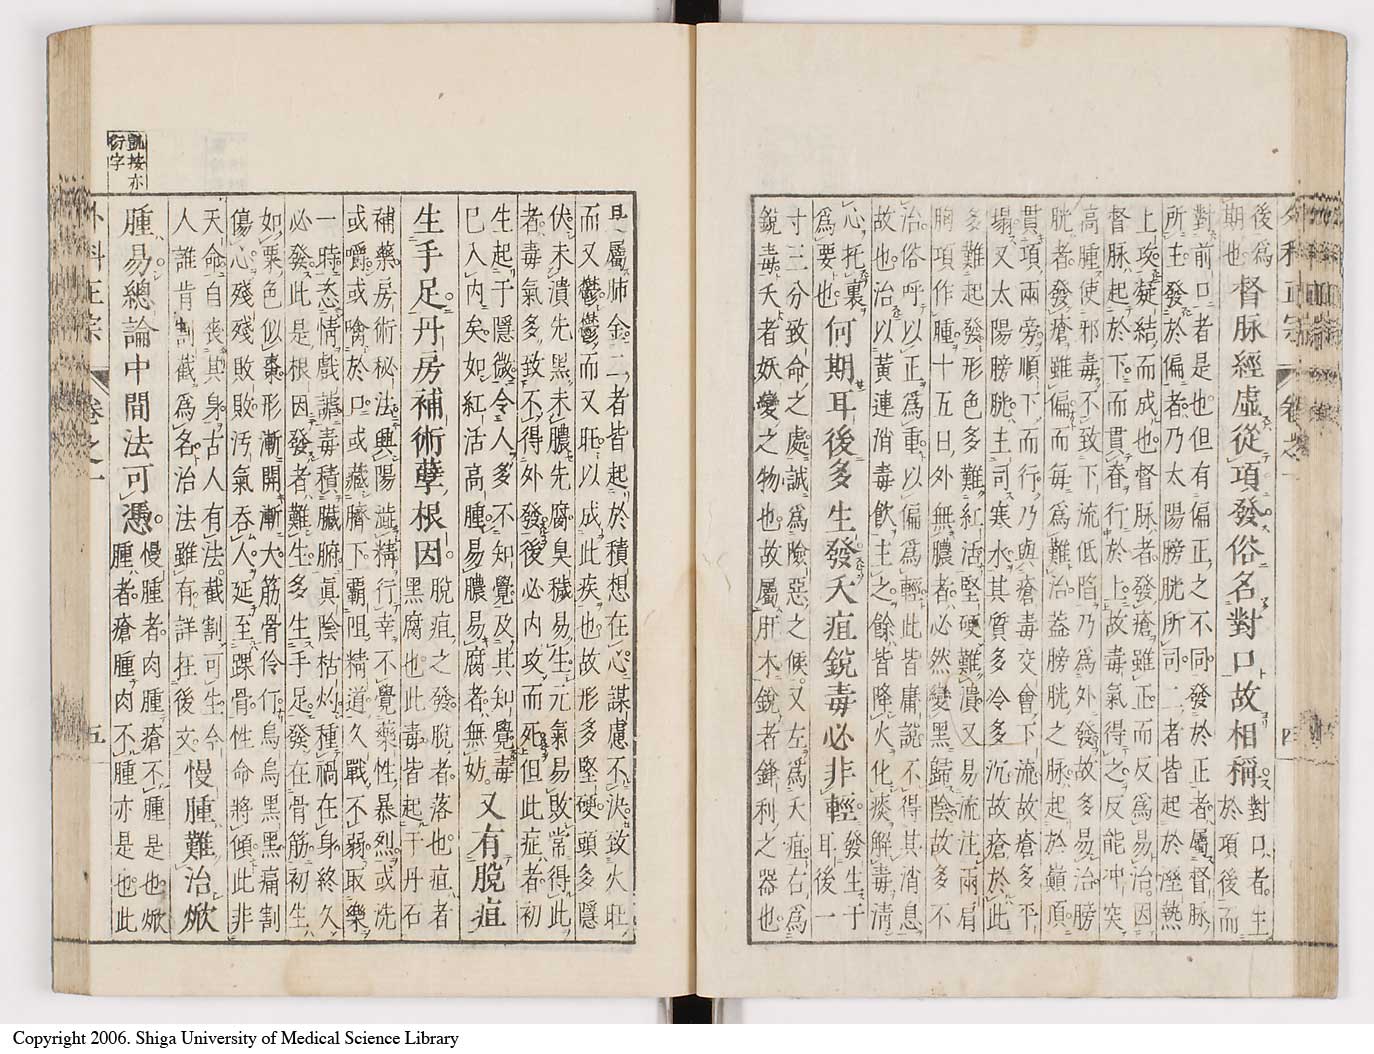 後為
期也
督脉經虛從項發俗名對口故相稱
對口者生
於項後而
對前口者是也但有偏正之不同發於正者屬督脉
所主發於偏者乃太陽膀胱所司二者皆起於溼熱
上攻凝結而成也督脉者發瘡雖正而反為易治因
督脉起於下而貫脊行於上故毒氣得之反能冲突
高腫使邪毒不致下流低陷乃為外發故多易治膀
胱者發瘡雖偏而每為難治蓋膀胱之脉起於巔頂
貫項兩旁順下而行乃與瘡毒交會下流故瘡多平
塌又太陽膀胱主司寒水其質多冷多沉故瘡於此
多難起發形色多難紅活堅硬難潰又易流注兩肩
胸項作腫十五日外無膿者必然變黑歸陰故多不
治俗呼以正為重以偏為輕此皆庸說不得其消息
故也治以黃連消毒飲主之餘皆降火化痰解毒清
心托裏
為要也
何期耳後多生發夭疽銳毒必非輕
發生于
耳後一
寸三分致命之處誠為險惡之候又左為夭疽右為
銳毒夭者妖變之物也故屬肝木銳者鋒利之器也
且屬肺金二者皆起於積想在心謀慮不決致火旺
而又鬱鬱而又旺以成此疾也故形多堅硬頭多隱
伏未潰先黑未膿先腐臭穢易生元氣易敗常得此
者毒氣多致不得外發後必內攻而死但此症者初
生起于隱微令人多不知覺及其知覺毒
已入內矣如紅活高腫易膿易腐者無妨
又有脫疽
生手足丹房補術孽根因
脫疽之發脫者落也疽者
黑腐也此毒皆起于丹石
補藥房術秘法興陽澁精行幸不覺藥性暴烈或洗
或嚼或噙於口或藏臍下霸阻精道久戰不弱取樂
一時恣情戲謔毒積臟腑真陰枯灼種禍在身終久
必發此是根因發者難生多生手足發在骨筋初生
如粟色似棗形漸開漸大筋骨伶仃烏烏黑黑痛割
傷心殘殘敗敗污氣吞人延至踝骨性命將傾此非
天命自喪其身古人有法截割可生今
人誰肯割截為名治法雖有詳在後文
慢腫難治焮
腫易總論中間法可憑
慢腫者肉腫瘡不腫是也焮
腫者瘡腫肉不腫亦是也此
凱按亦
衍字
外科正宗 卷之一 五
Copyright 2006. Shiga University of Medical Science Library